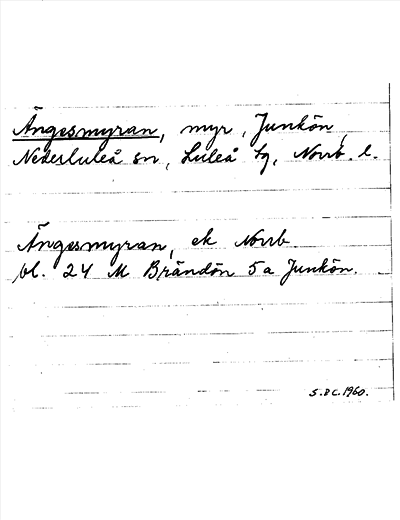 Ängesmyran, myr, Junkön,
Nederluleå sn, Luleå tg, Norrb. l.
Ängesmyran, ek Norrb.
bl. 24 M Brändön 5 a Junkön.
S. DC. 1960.